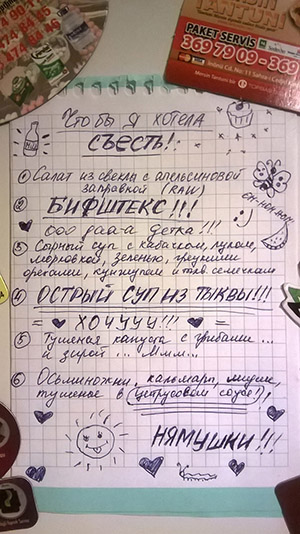 PAKET SERVİS
369 79 09-369
Что бы я хотела
СЪЕСТЬ!:
① Салат из свеклы с апельсиновой
заправкой (RAW)
② БИФШТЕКС!!!
ооо даа-а детка!!!
③ Сырный суп с кабачком, луком,
морковкой, зеленью, грецкими
орехами, кунжутом и тыкв. семечками
④ ОСТРЫЙ СУП ИЗ ТЫКВЫ!!!
= ХОЧУУУ!!! =
⑤ Тушеная капуста с грибами...
и зирой... Ммм...
⑥ Осьминожки, кальмары, мидии,
тушеное в (цитрусовом соусе)!
НЯМУШКИ!!!
ОМ-НОМ-НОМ